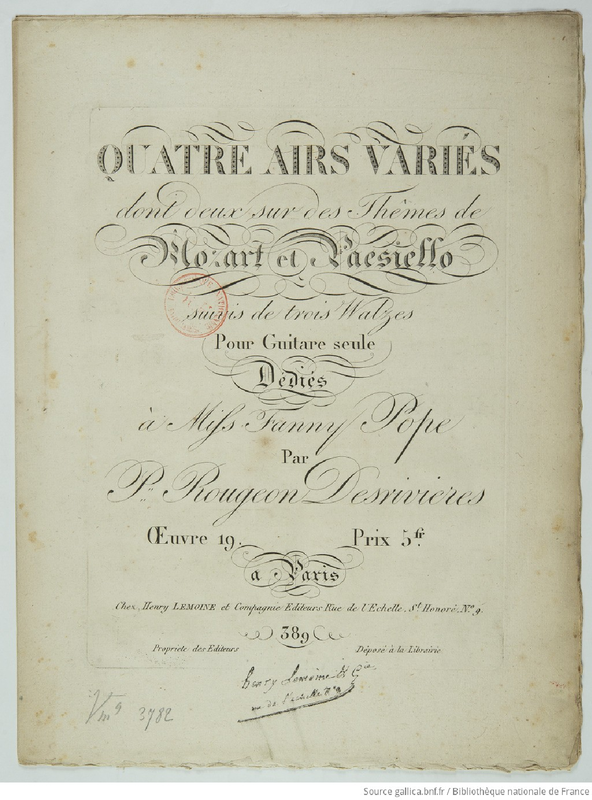 QUATRE AIRS VARIÉS
dont deux sur des Thêmes de
Mozart et Paesiello
suivis de trois Walzes
Pour Guitare seule
Dédiés
à Miss Fanny Pope
Par
Pre. Rougeon Desrivieres
Œuvre 19. Prix 5fr.
a Paris
Chez, Henry LEMOINE et Compagnie Editeurs Rue de l'Echelle, St. Honoré, No. 9.
389
Propriete des Editeurs Déposé à la Librairie
Henry Lemoine & Cie
rue de l'echelle No 9
Vm9 3782
Source gallica.bnf.fr / Bibliothèque nationale de France